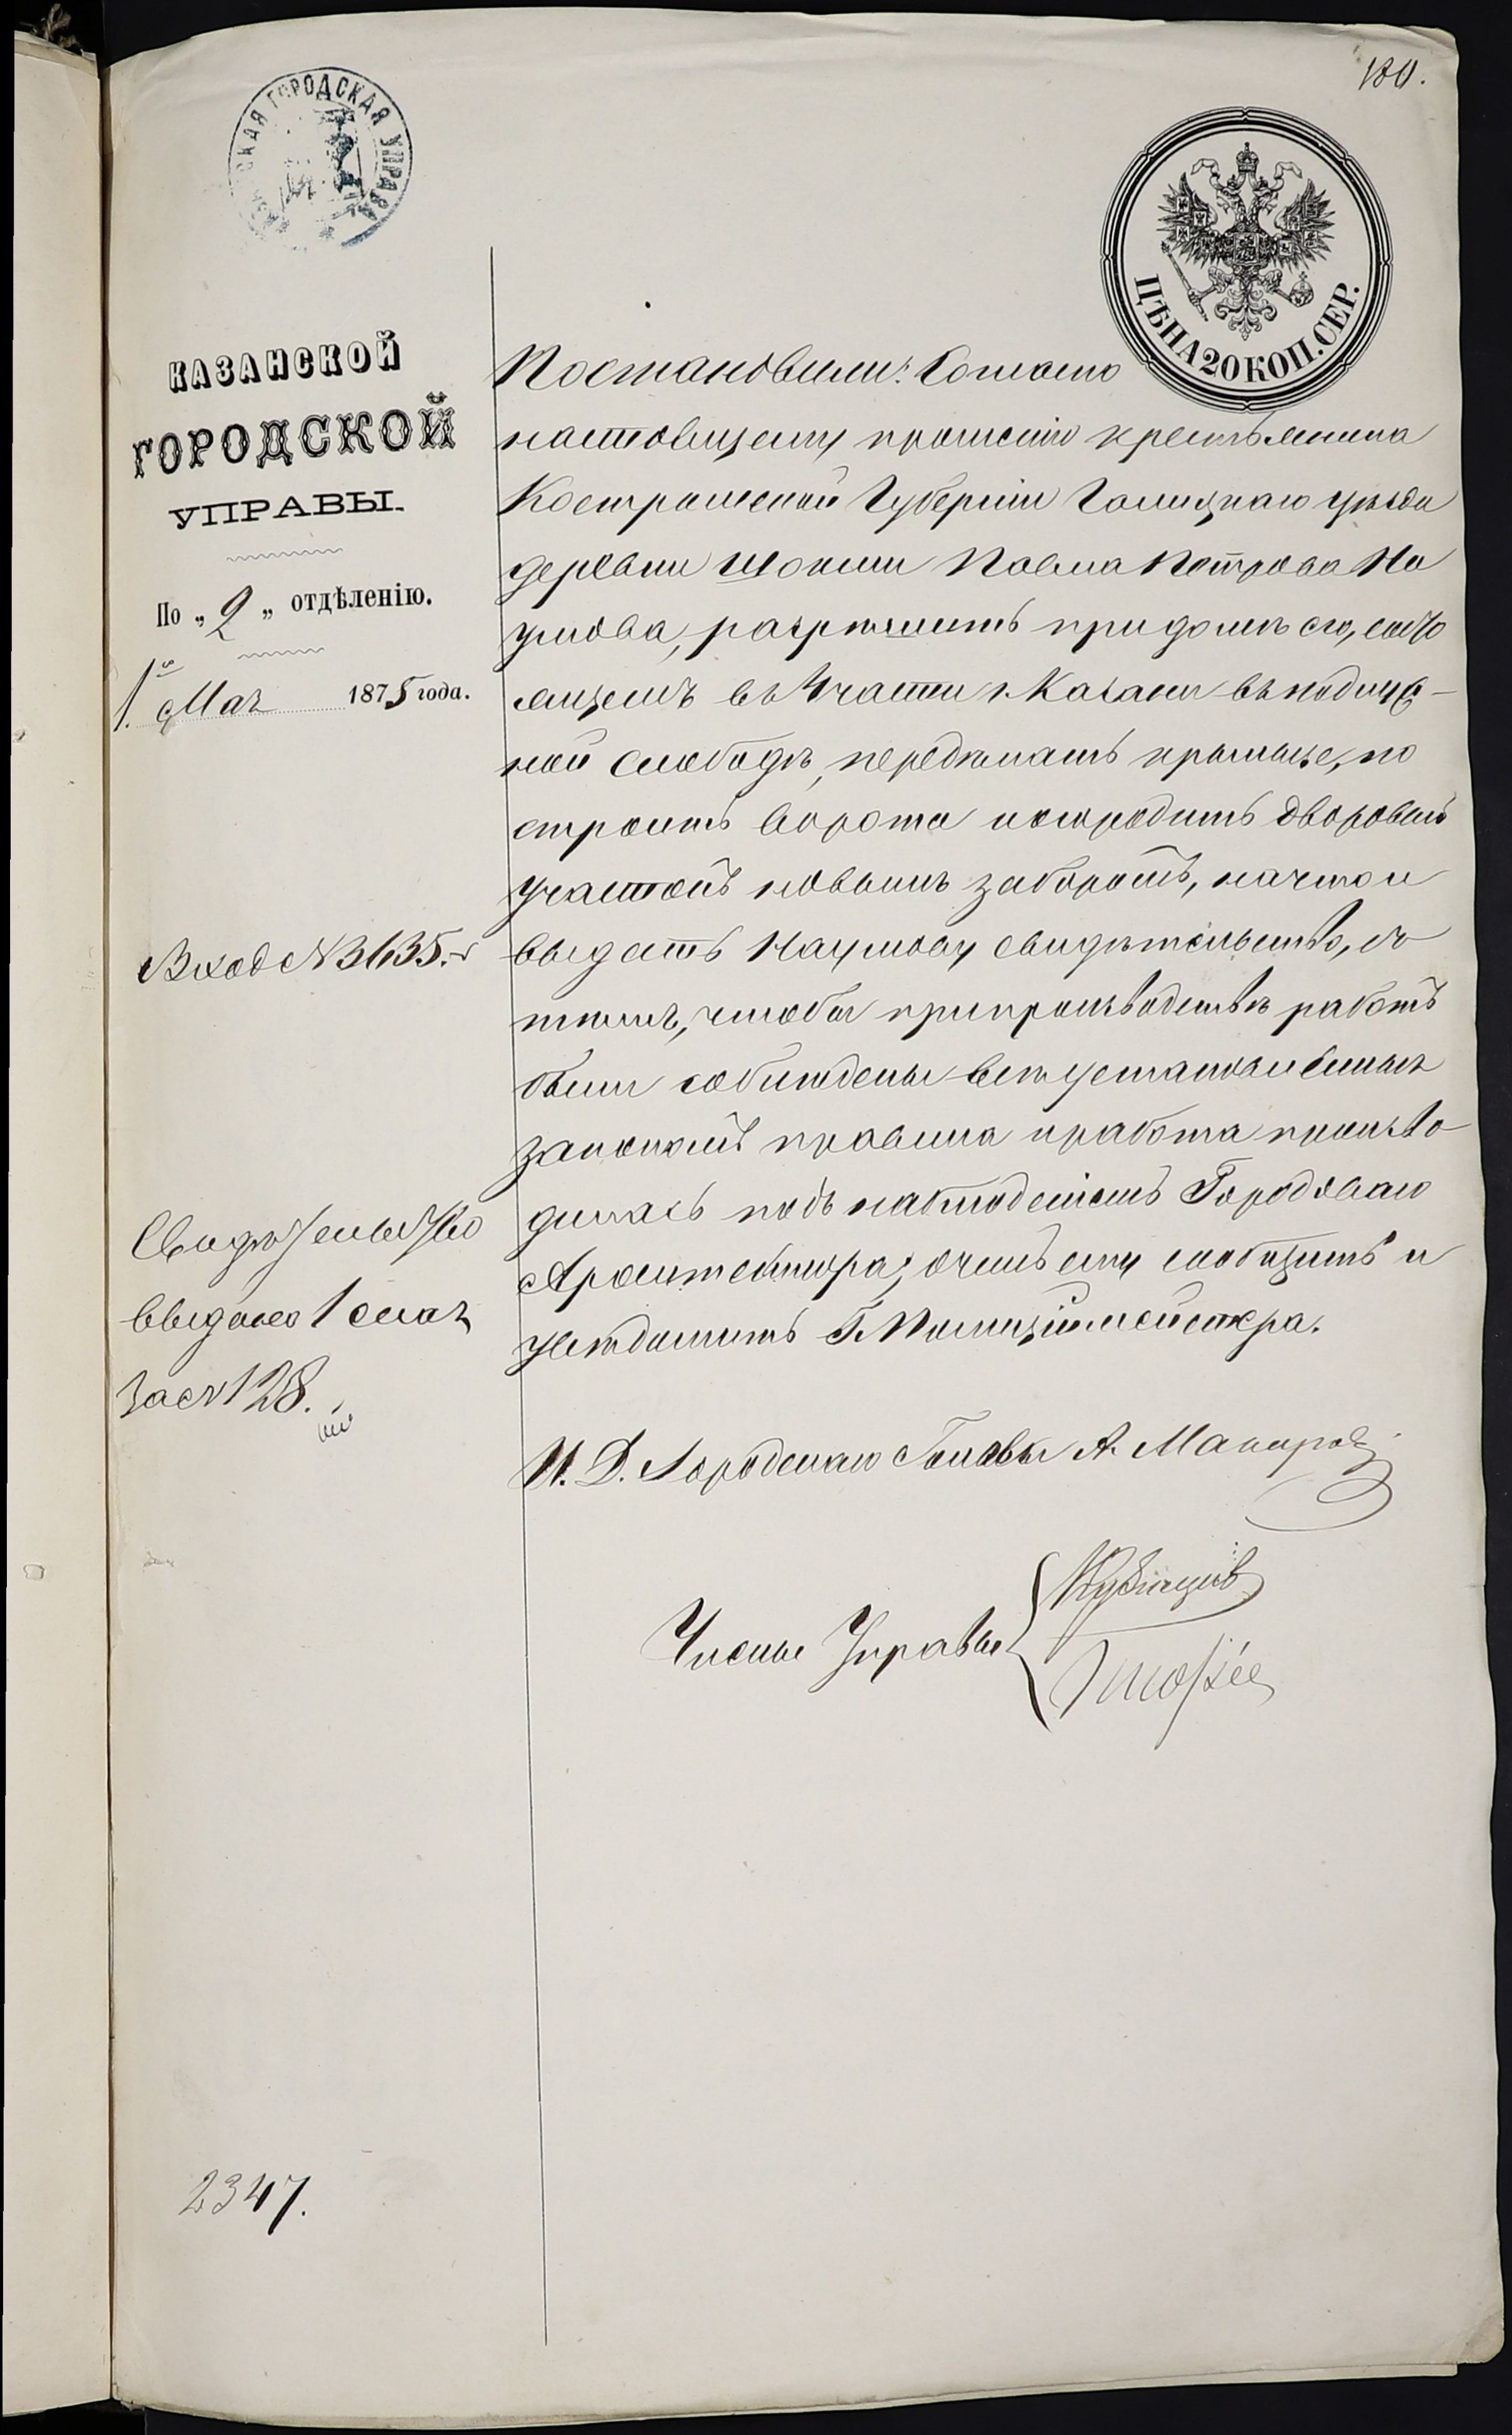 180.
КАЗАНСКАЯ ГОРОДСКАЯ УПРАВА
ЦѢНА 20 КОП. СЕР.
КАЗАНСКОЙ
ГОРОДСКОЙ
УПРАВЫ.
По „2„ отдѣленію.
1го Мая 1875 года.
Вход № 3635.
Свидѣтельство
выдано 1 мая
за № 128.
2347.
Постановили: Согласно
настоящему прошенію крестьянина
Костромской Губерніи Галицкаго уѣзда
деревни Шокши Павла Петрова На
умова, разрѣшить при домѣ его, состо
ящемъ въ части г. Казани въ подлуж-
ной слободѣ, передѣлать крыльце, по
строить ворота и огородить дворовый
участокъ новымъ заборомъ, на что и
выдать Наумову свидѣтельство, съ
тѣмъ, чтобы при производствѣ работъ
были соблюдены всѣ установленныя
закономъ правила и работа произво
дилась подъ наблюденіемъ Городоваго
Архитектора, о чемъ ему сообщить и
увѣдомить Г. Полиціймейстера.
И. Д. Городскаго Головы А.
Члены Управы